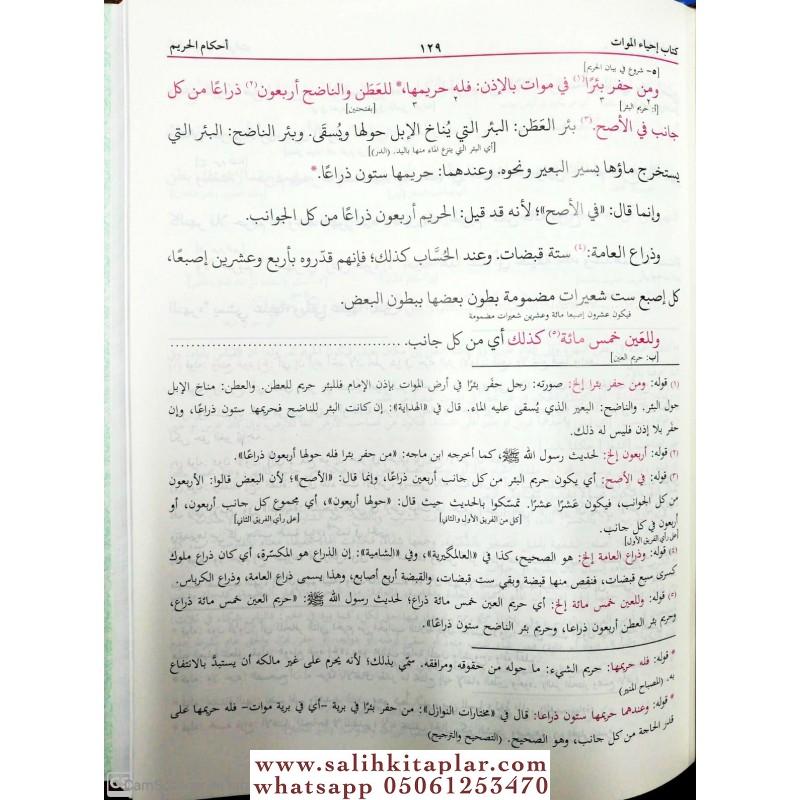 كتاب إحياء الموات ١٢٩ أحكام الحريم
[٥- شروع في بيان الحريم]
ومن حفر بئرًا(١) في موات بالإذن: فله حريمها،* للعَطَن والناضح أربعون(٢) ذراعًا من كل
[أ: حريم البئر] [بفتحتين]
جانب في الأصح.(٣) بئر العَطَن: البئر التي يُناخ الإبل حولها ويُسقَى. وبئر الناضح: البئر التي
[أي البئر التي ينزع الماء منها باليد. (الدر)]
يستخرج ماؤها بسير البعير ونحوه. وعندهما: حريمها ستون ذراعًا.*
وإنما قال: «في الأصح»؛ لأنه قد قيل: الحريم أربعون ذراعًا من كل الجوانب.
وذراع العامة:(٤) ستة قبضات. وعند الحُسَّاب كذلك؛ فإنهم قدّروه بأربع وعشرين إصبعًا،
كل إصبع ست شعيرات مضمومة بطون بعضها ببطون البعض.
فيكون عشرون إصبعا مائة وعشرين شعيرات مضمومة
وللعَين خمس مائة(٥) كذلك أي من كل جانب.
[ب: حريم العين]
(١) قوله: ومن حفر بئرا إلخ: صورته: رجل حفَر بئرًا في أرض الموات بإذن الإمام فللبئر حريم للعطن. والعطن: مناخ الإبل
حول البئر. والناضح: البعير الذي يُسقى عليه الماء. قال في «الهداية»: إن كانت البئر للناضح فحريمها ستون ذراعًا، وإن
حفَر بلا إذن فليس له ذلك.
(٢) قوله: أربعون إلخ: لحديث رسول الله ﷺ، كما أخرجه ابن ماجه: «من حفر بئرا فله حولها أربعون ذراعًا».
(٣) قوله: في الأصح: أي يكون حريم البئر من كل جانب أربعين ذراعًا، وإنما قال: «الأصح»؛ لأن البعض قالوا: الأربعون
من كل الجوانب، فيكون عَشرًا عشرًا. تمسّكوا بالحديث حيث قال: «حولها أربعون»، أي مجموع كل جانب أربعون، أو
[كل من الفريق الأول والثاني] [على رأي الفريق الثاني]
أربعون في كل جانب.
[على رأي الفريق الأول]
(٤) قوله: وذراع العامة إلخ: هو الصحيح، كذا في «العالمگيرية»، وفي «الشامية»: إن الذراع هو المكسّرة، أي كان ذراع ملوك
كسرى سبع قبضات، فنقص منها قبضة وبقي ست قبضات، والقبضة أربع أصابع، وهذا يسمى ذراع العامة، وذراع الكرباس.
(٥) قوله: وللعين خمس مائة إلخ: أي حريم العين خمس مائة ذراع؛ لحديث رسول الله ﷺ: «حريم العين خمس مائة ذراع،
وحريم بئر العطن أربعون ذراعا، وحريم بئر الناضح ستون ذراعًا».
* قوله: فله حريمها: حريم الشيء: ما حوله من حقوقه ومرافقه. سمّي بذلك؛ لأنه يحرم على غير مالكه أن يستبدَّ بالانتفاع
به. (المصباح المنير)
* قوله: وعندهما حريمها ستون ذراعا: قال في «مختارات النوازل»: من حفر بئرًا في برية -أي في برية موات- فله حريمها على
قدر الحاجة من كل جانب، وهو الصحيح. (التصحيح والترجيح)
www.salihkitaplar.com
whatsapp 05061253470